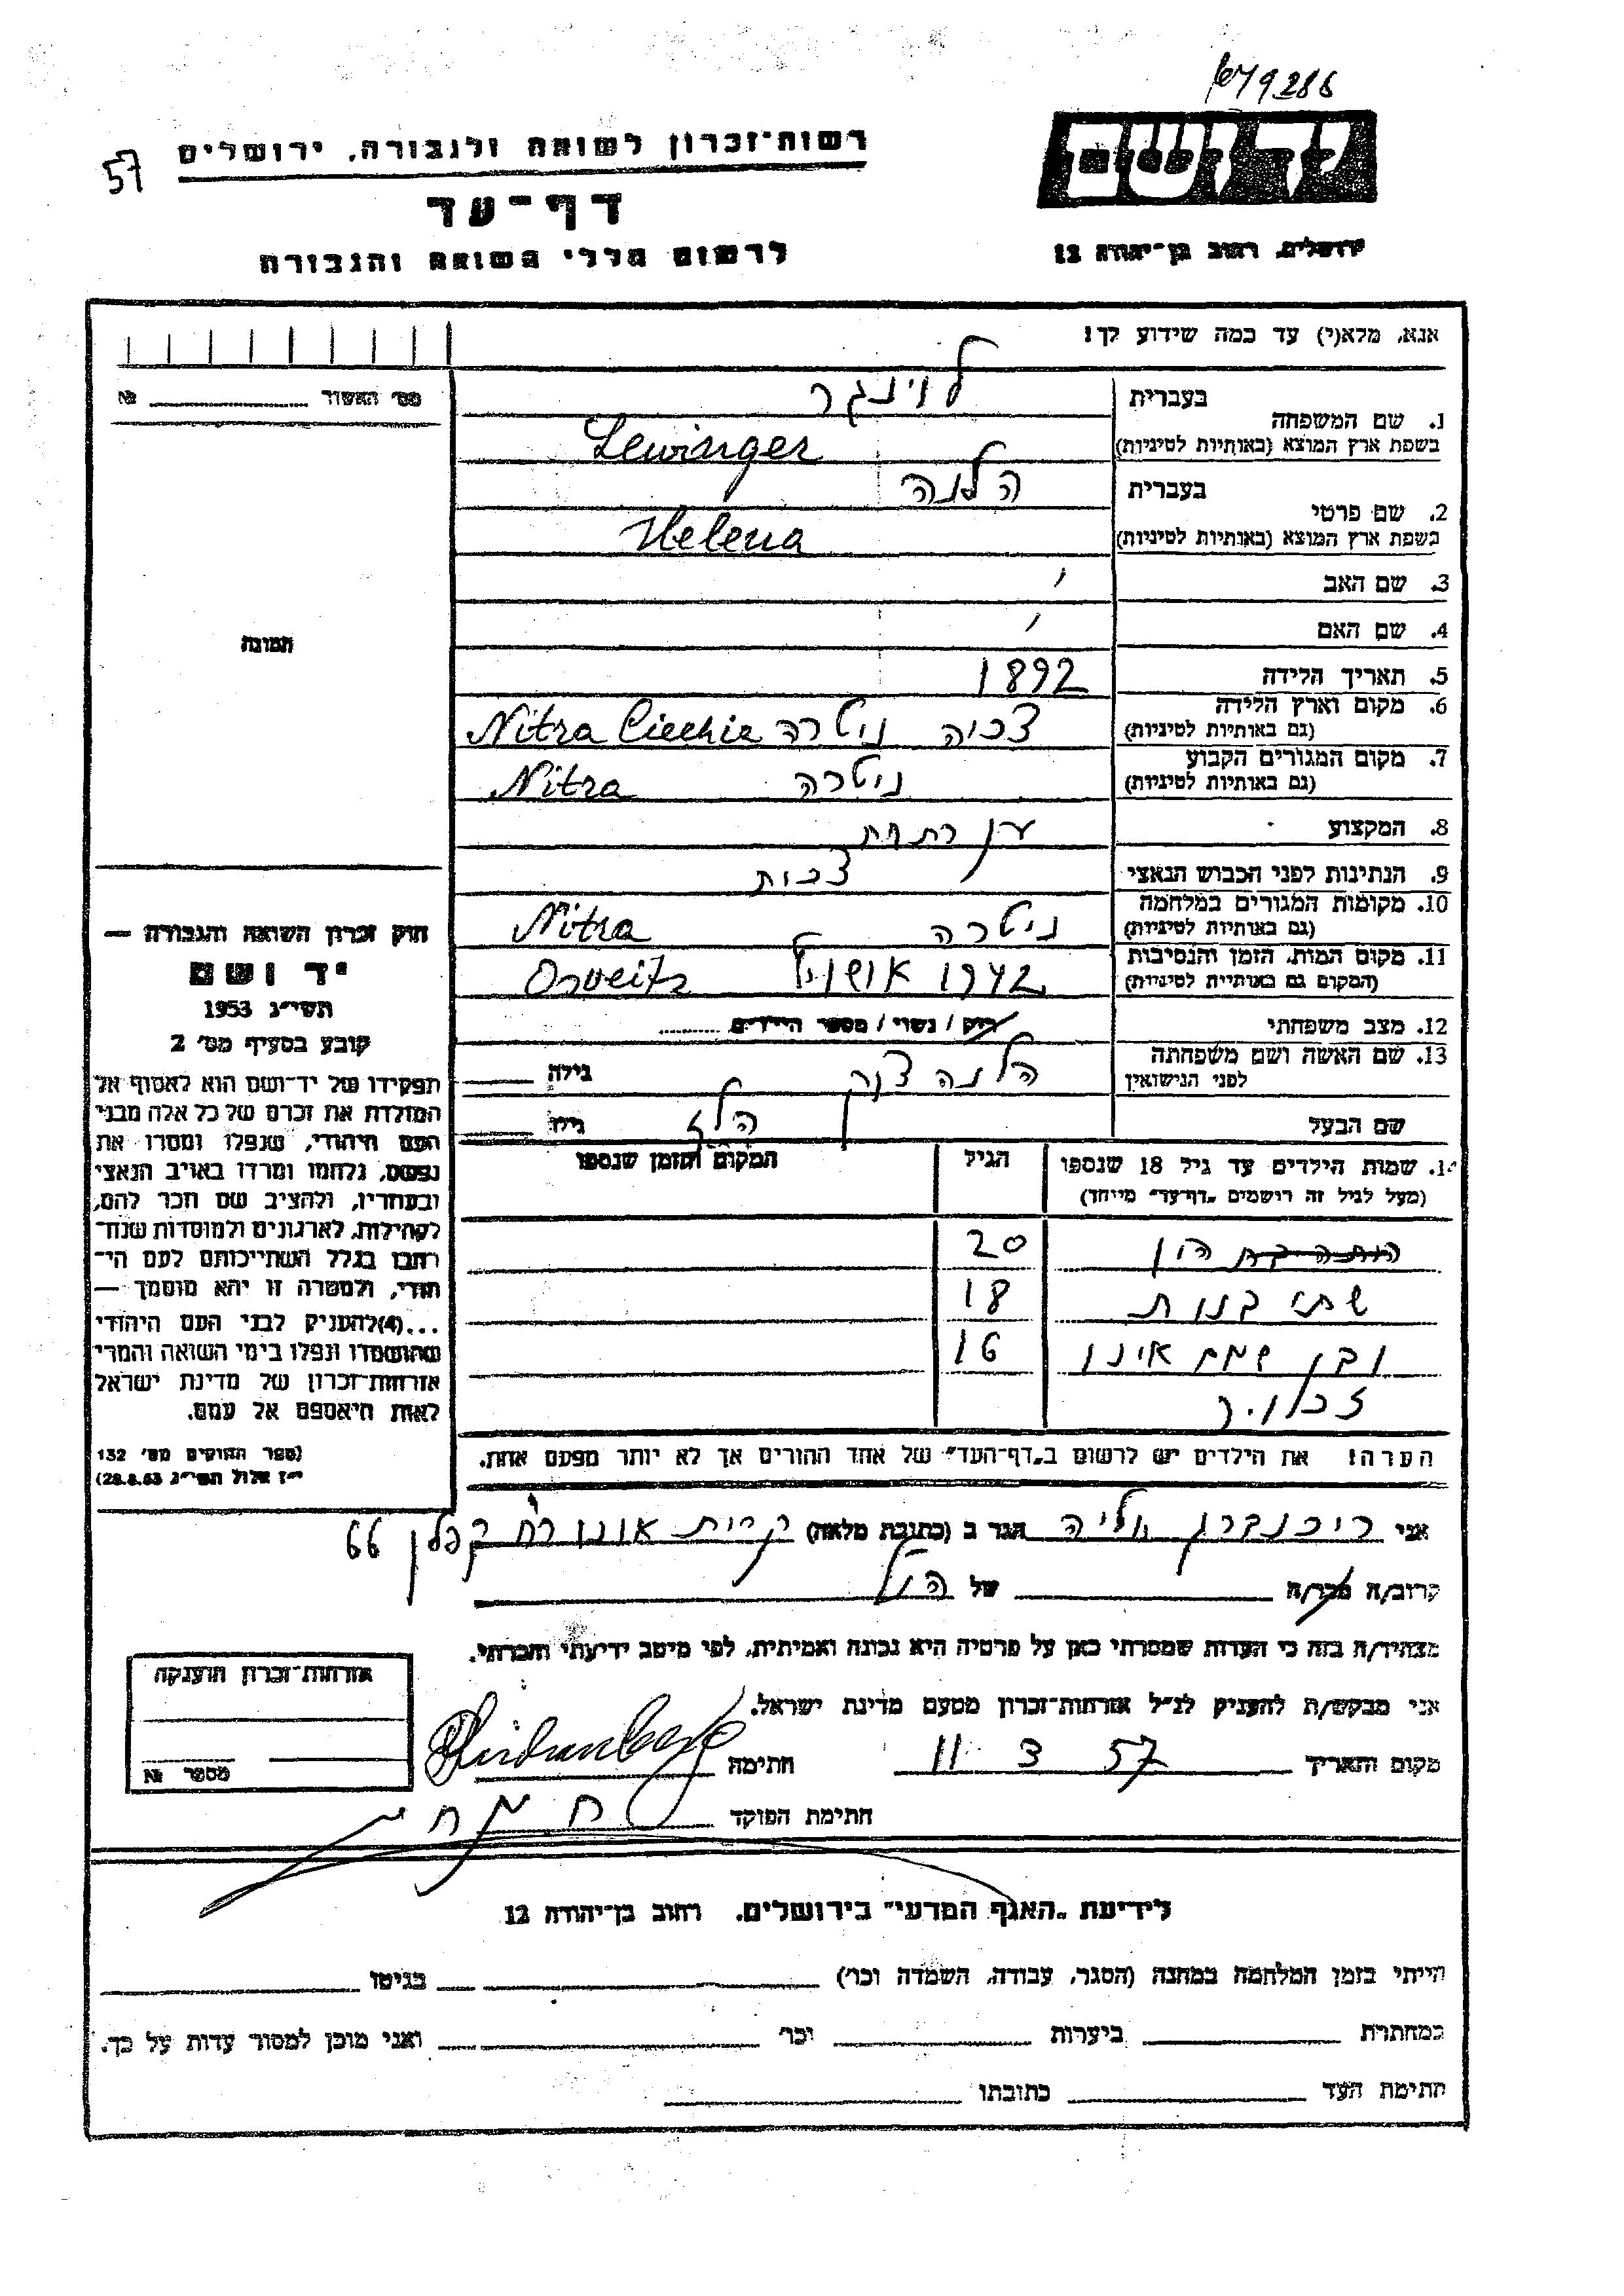 679286
יד ושם
ירושלים, רחוב בן־יהודה 12
57
רשות־זכרון לשואה ולגבורה, ירושלים
דף־עד
לרשום חללי השואה והגבורה
אנא, מלא(י) עד כמה שידוע לך!
מס׳ האשור №
1. שם המשפחה
בעברית לוינגר
בשפת ארץ המוצא (באותיות לטיניות) Lewinger
2. שם פרטי
בעברית הלנה
בשפת ארץ המוצא (באותיות לטיניות) Helena
3. שם האב
4. שם האם
5. תאריך הלידה 1892
6. מקום וארץ הלידה
(גם באותיות לטיניות) צכיה ניטרה Nitra Ciechie
7. מקום המגורים הקבוע
(גם באותיות לטיניות) ניטרה Nitra
8. המקצוע
9. הנתינות לפני הכבוש הנאצי צכית
10. מקומות המגורים במלחמה
(גם באותיות לטיניות) ניטרה Nitra
11. מקום המות, הזמן והנסיבות
(המקום גם באותיית לטיניית) 1942 Osveitz
12. מצב משפחתי רווק / נשוי / מספר הילדים
13. שם האשה ושם משפחתה
לפני הנישואין הלנה גילה
שם הבעל גילו
14. שמות הילדים עד גיל 18 שנספו
(מעל לגיל זה רושמים „דף־עד״ מייחד)
הגיל
המקום והזמן שנספו
20
שתי בנות 18
ובן שמם אינו 16
זכור לי
הערה! את הילדים יש לרשום ב„דף־העד״ של אחד ההורים אך לא יותר מפעם אחת.
תמונה
חוק זכרון השואה והגבורה —
יד ושם
תשי״ג 1953
קובע בסעיף מס׳ 2
תפקידו של יד־ושם הוא לאסוף אל
המולדת את זכרם של כל אלה מבני
העם היהודי, שנפלו ומסרו את
נפשם, נלחמו ומרדו באויב הנאצי
ובעוזריו, ולהציב שם וזכר להם,
לקהילות, לארגונים ולמוסדות שנח־
רבו בגלל השתייכותם לעם הי־
הודי, ולמטרה זו יהא מוסמך —
...(4) להעניק לבני העם היהודי
שהושמדו ונפלו בימי השואה והמרי
אזרחות־זכרון של מדינת ישראל
לאות היאספם אל עמם.
(ספר החוקים מס׳ 132
י״ז אלול תשי״ג 28.8.53)
אני רייכנברג הגר ב (כתובת מלאה) קרית אונו רח׳ קפלן 66
קרוב/ה מכר/ה של
מצהיר/ה בזה כי העדות שמסרתי כאן על פרטיה היא נכונה ואמיתית, לפי מיטב ידיעתי והכרתי.
אני מבקש/ת להעניק לנ״ל אזרחות־זכרון מטעם מדינת ישראל.
מקום ותאריך 11 3 57 חתימה
חתימת הפוקד
אזרחות־זכרון הוענקה
מספר №
לידיעת „האגף המדעי״ בירושלים, רחוב בן־יהודה 12
הייתי בזמן המלחמה במחנה (הסגר, עבודה, השמדה וכו׳) בגיטו
במחתרת ביערות וכו׳ ואני מוכן למסור עדות על כך.
חתימת העד כתובתו